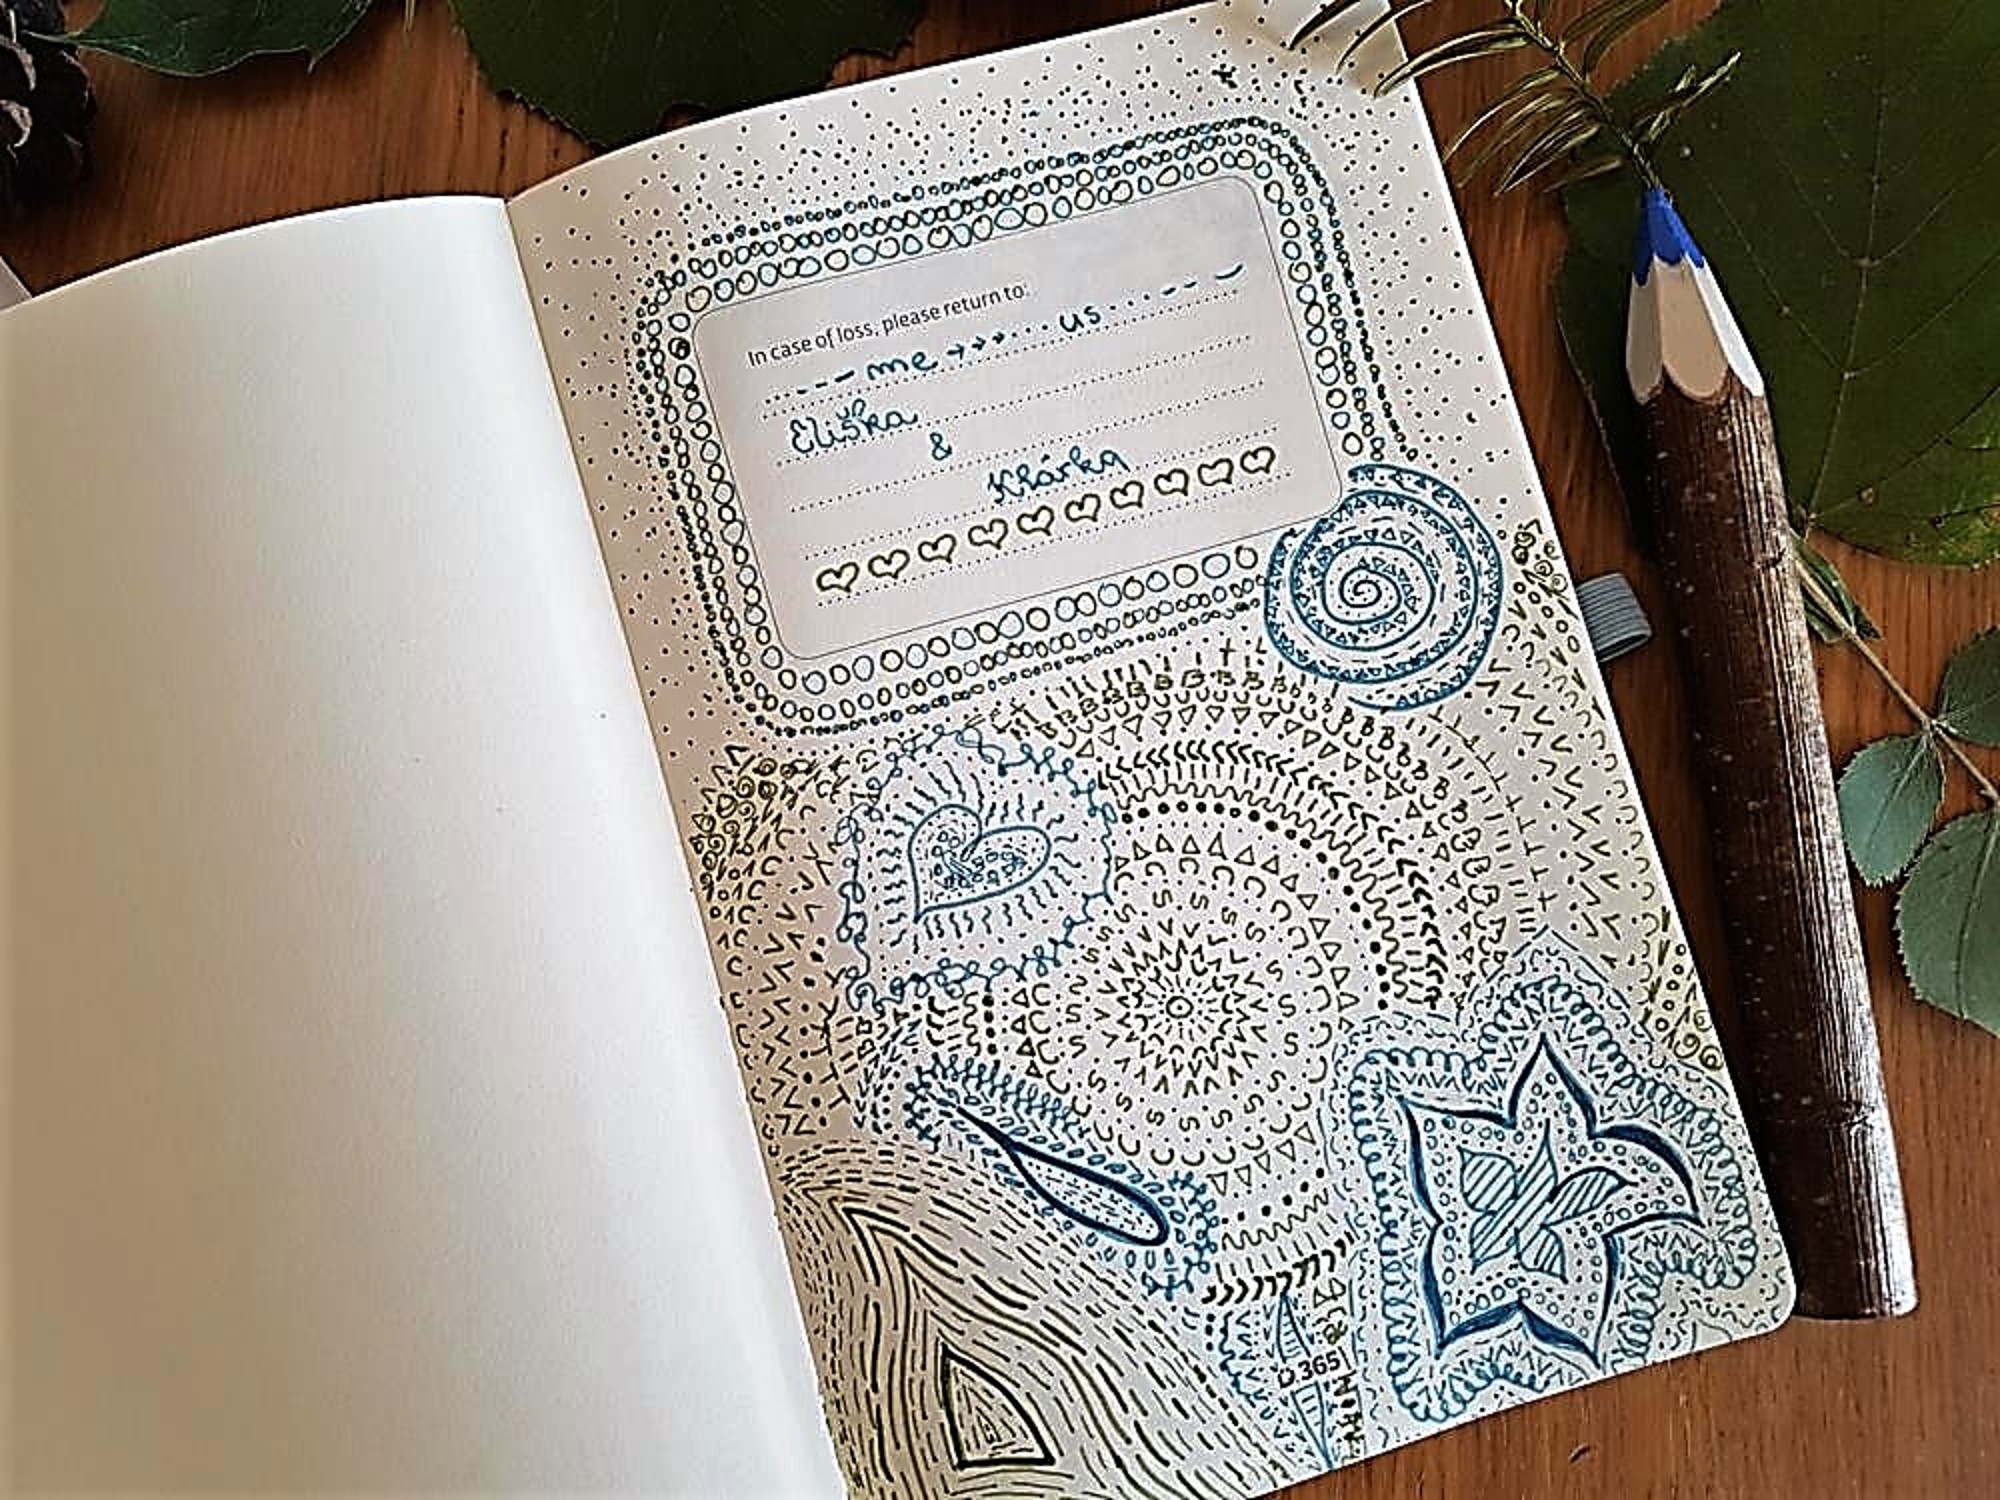 In case of loss, please return to:
me →→→... us
Eliška
&
Klárka
365